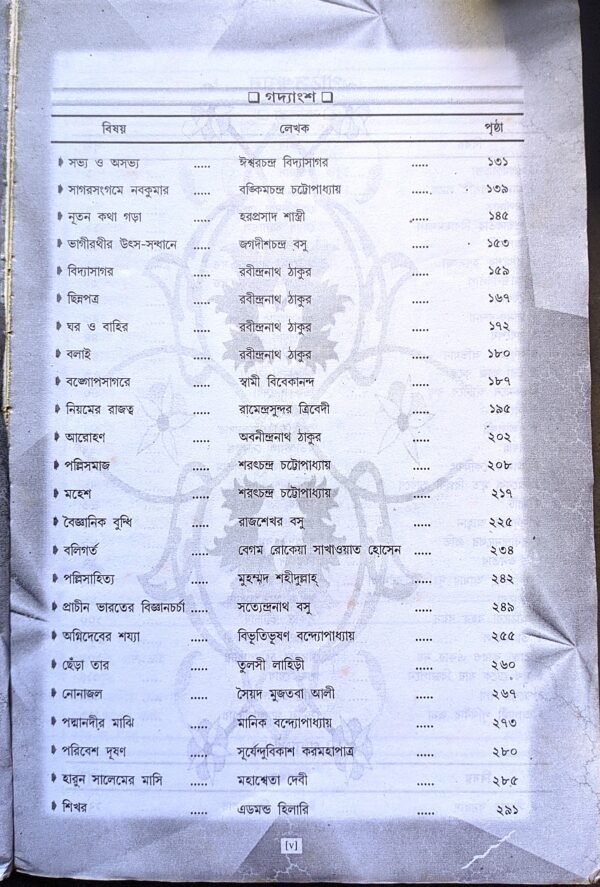 ❑ গদ্যাংশ ❑
বিষয় লেখক পৃষ্ঠা
সভ্য ও অসভ্য ..... ঈশ্বরচন্দ্র বিদ্যাসাগর ..... ১৩১
সাগরসংগমে নবকুমার ..... বঙ্কিমচন্দ্র চট্টোপাধ্যায় ..... ১৩৯
নূতন কথা গড়া ..... হরপ্রসাদ শাস্ত্রী ..... ১৪৫
ভাগীরথীর উৎস-সন্ধানে ..... জগদীশচন্দ্র বসু ..... ১৫৩
বিদ্যাসাগর ..... রবীন্দ্রনাথ ঠাকুর ..... ১৫৯
ছিন্নপত্র ..... রবীন্দ্রনাথ ঠাকুর ..... ১৬৭
ঘর ও বাহির ..... রবীন্দ্রনাথ ঠাকুর ..... ১৭২
বলাই ..... রবীন্দ্রনাথ ঠাকুর ..... ১৮০
বঙ্গোপসাগরে ..... স্বামী বিবেকানন্দ ..... ১৮৭
নিয়মের রাজত্ব ..... রামেন্দ্রসুন্দর ত্রিবেদী ..... ১৯৫
আরোহণ ..... অবনীন্দ্রনাথ ঠাকুর ..... ২০২
পল্লিসমাজ ..... শরৎচন্দ্র চট্টোপাধ্যায় ..... ২০৮
মহেশ ..... শরৎচন্দ্র চট্টোপাধ্যায় ..... ২১৭
বৈজ্ঞানিক বুদ্ধি ..... রাজশেখর বসু ..... ২২৫
বলিগর্ত ..... বেগম রোকেয়া সাখাওয়াত হোসেন ..... ২৩৪
পল্লিসাহিত্য ..... মুহম্মদ শহীদুল্লাহ্ ..... ২৪২
প্রাচীন ভারতের বিজ্ঞানচর্চা ..... সত্যেন্দ্রনাথ বসু ..... ২৪৯
অগ্নিদেবের শয্যা ..... বিভূতিভূষণ বন্দ্যোপাধ্যায় ..... ২৫৫
ছেঁড়া তার ..... তুলসী লাহিড়ী ..... ২৬০
নোনাজল ..... সৈয়দ মুজতবা আলী ..... ২৬৭
পদ্মানদীর মাঝি ..... মানিক বন্দ্যোপাধ্যায় ..... ২৭৩
পরিবেশ দূষণ ..... সূর্যেন্দুবিকাশ করমহাপাত্র ..... ২৮০
হারুন সালেমের মাসি ..... মহাশ্বেতা দেবী ..... ২৮৫
শিখর ..... এডমন্ড হিলারি ..... ২৯১
[v]